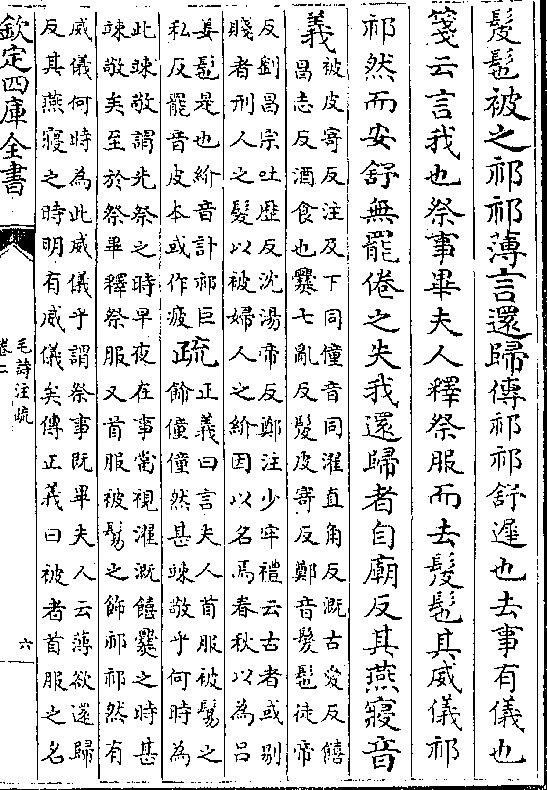 髲髢被之祁祁薄言還歸傳祁祁舒遲也去事有儀也
箋云言我也祭事畢夫人釋祭服而去髲髢其威儀祁
祁然而安舒無罷倦之失我還歸者自廟反其燕寢音
義被皮寄反注及下同僮音同濯直角反溉古愛反饎
昌志反酒食也爨七亂反髲皮寄反鄭音髲髢徒帝
反劉昌宗吐歷反沈湯帝反鄭注少牢禮云古者或剔
賤者刑人之髮以被婦人之紒因以名焉春秋以為呂
姜髢是也紒音計祁巨
私反罷音皮本或作疲疏正義曰言夫人首服被鬄之
飾僮僮然甚竦敬乎何時為
此竦敬謂先祭之時早夜在事當視濯溉饎爨之時甚
竦敬矣至於祭畢釋祭服又首服被鬄之飾祁祁然有
威儀何時為此威儀乎謂祭事既畢夫人云薄欲還歸
反其燕寢之時明有威儀矣傳正義曰被者首服之名
欽定四庫全書
毛詩注疏
卷二
六